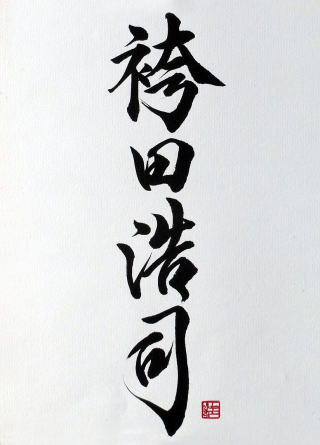 袴田浩司